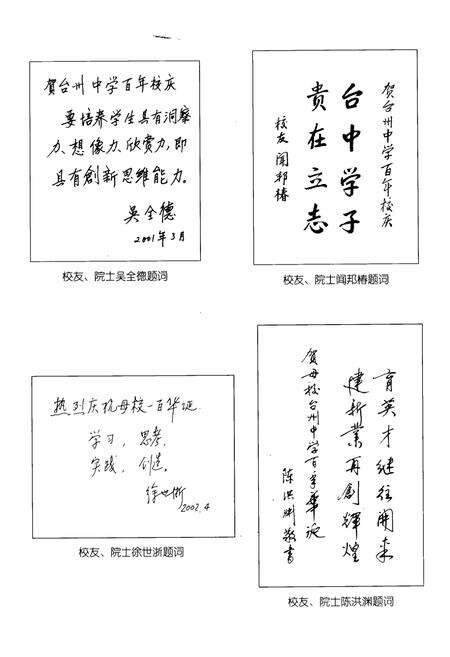 賀台州中学百年校庆
要培养学生具有洞察
力、想像力、欣赏力，即
具有創新思维能力。
吴全德
2001年3月
校友、院士吴全德题词
贺台州中学百年校庆
台中学子
贵在立志
校友 闻邦椿
校友、院士闻邦椿题词
热烈庆祝母校一百华诞
学习，思考，
实践，创造。
徐世浙
2002.4
校友、院士徐世浙题词
育英才继往開来
建新業再创輝煌
贺母校台州中学百年華诞
陈洪渊敬書
校友、院士陈洪渊题词